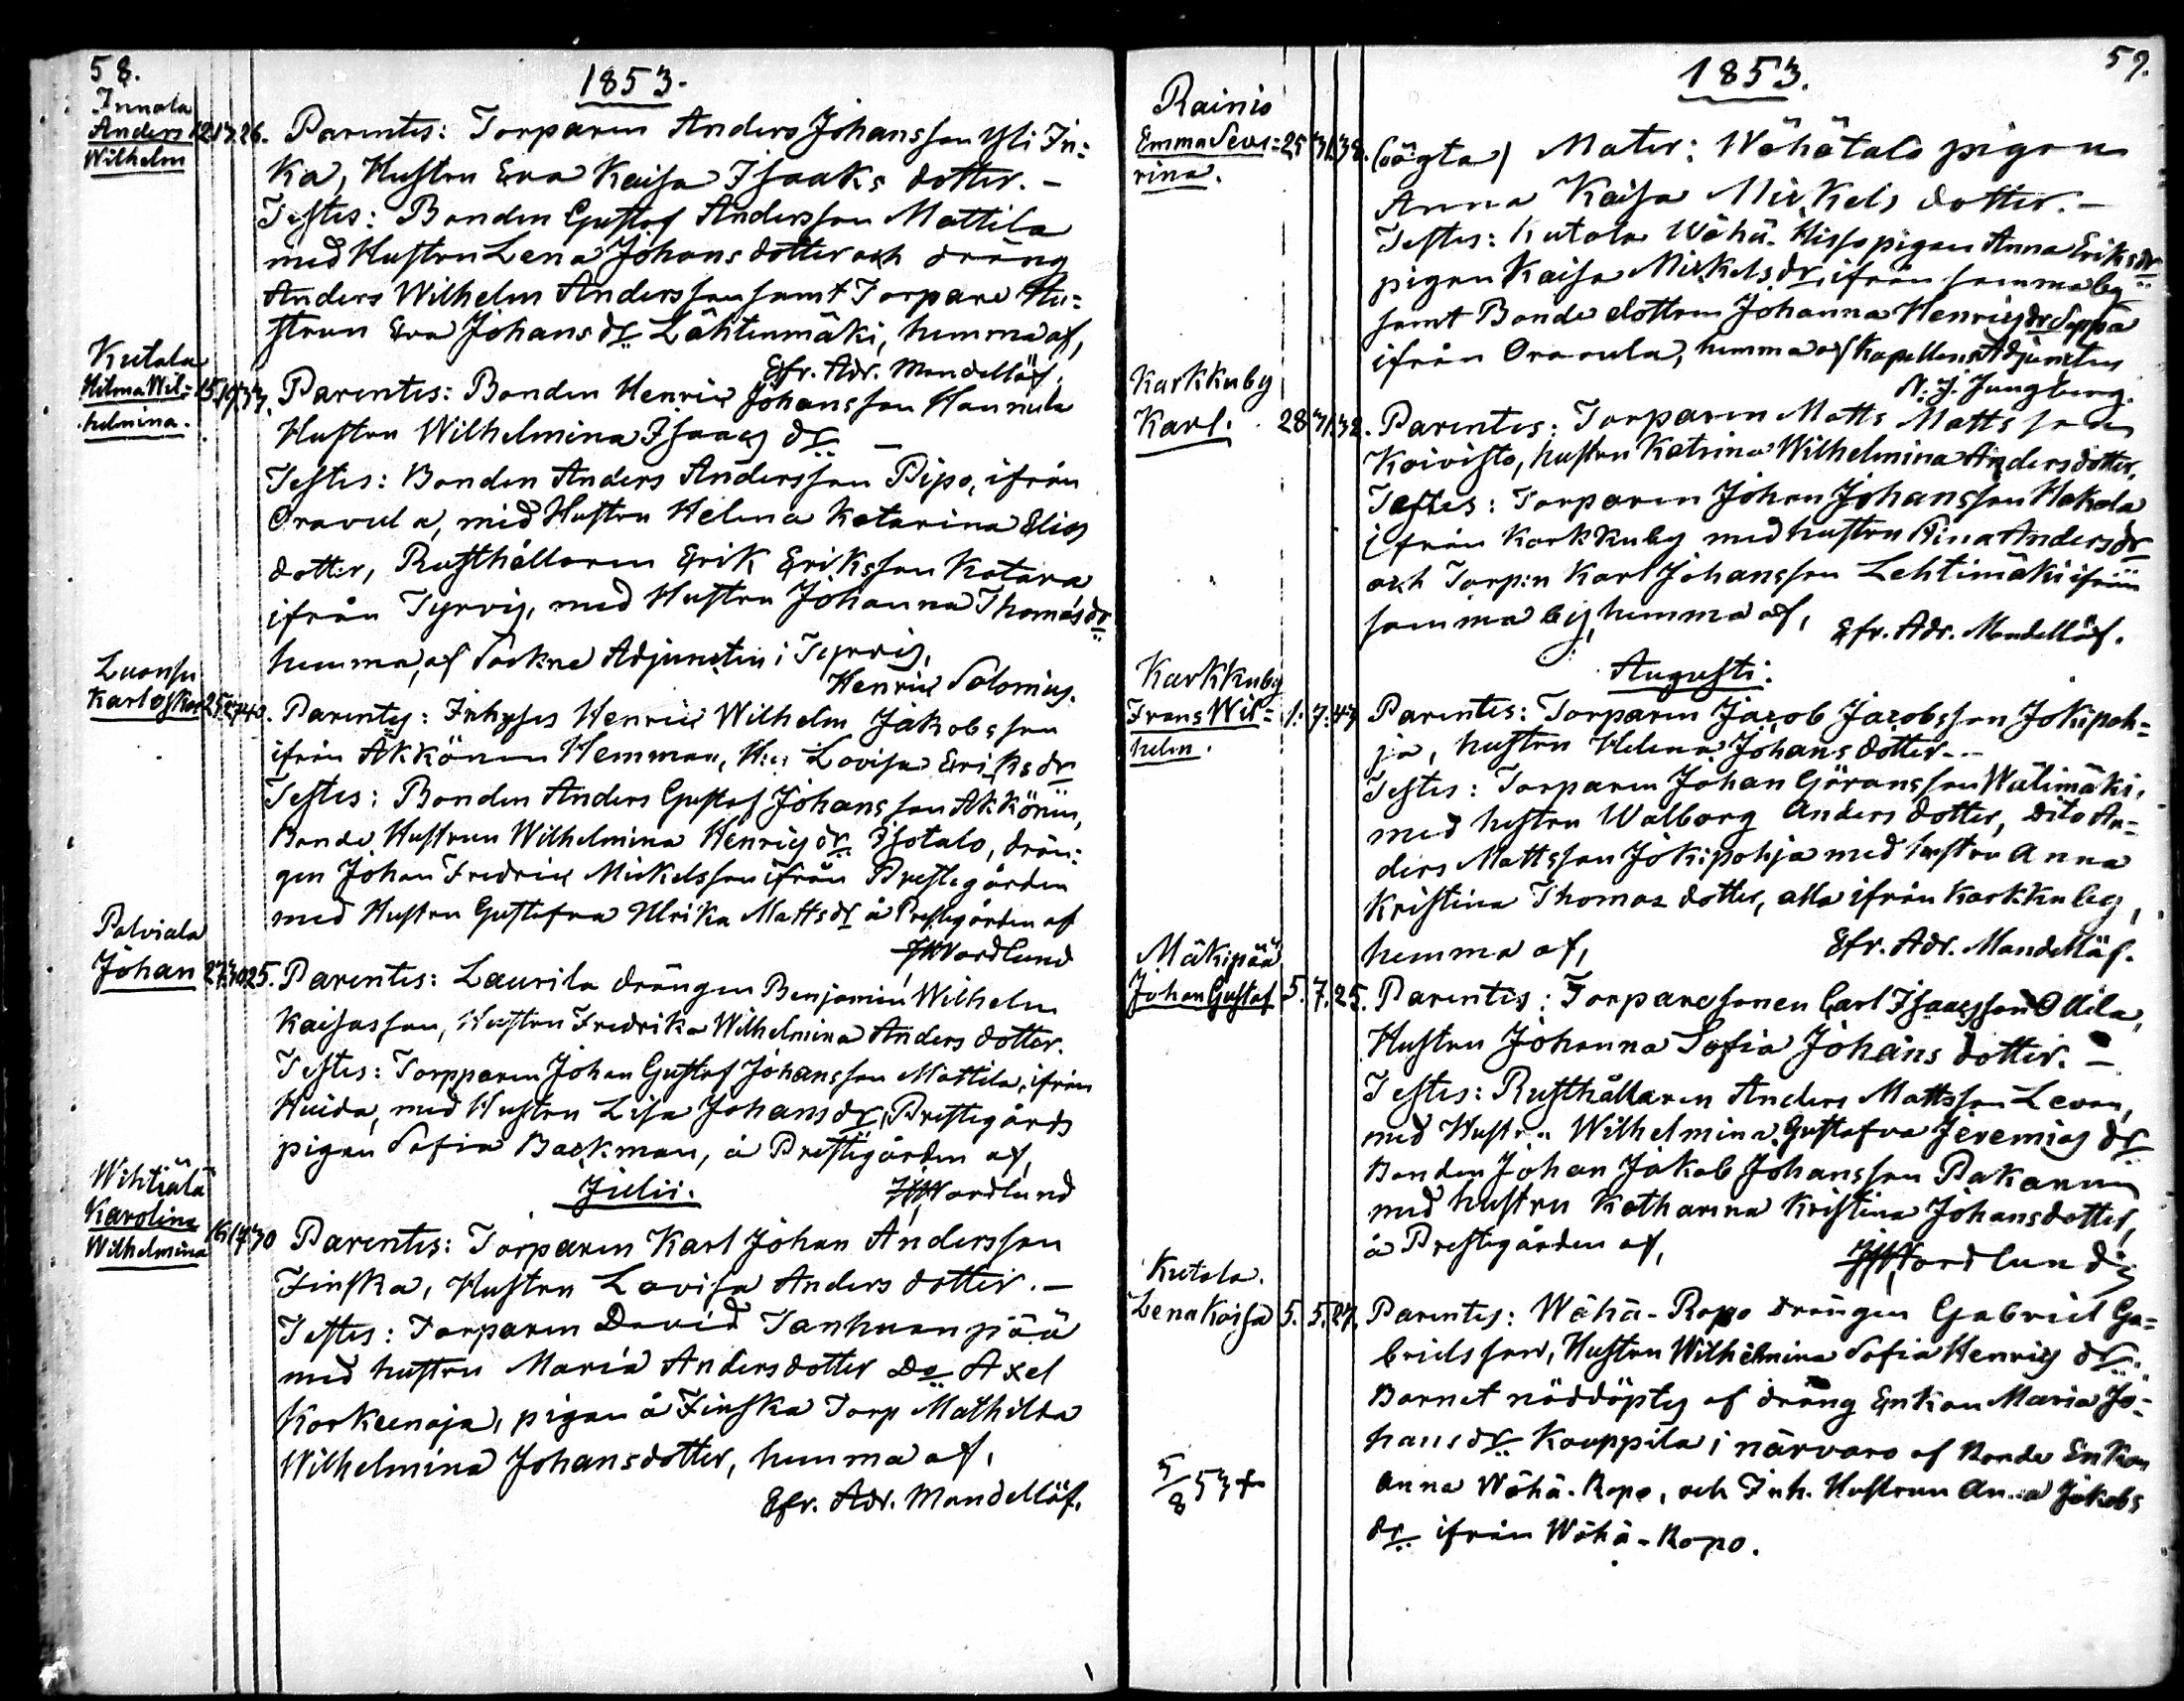 58.
1853.
Innala
Anders 12. 17. 26.
Wilhelm
Parentes: Torparen Anders Johansson Yli In=
ka, Hustru Eva Kaisa Isaaks dotter. –
Testes: Bonden Gustaf Andersson Mattila
med Hustru Lena Johans dotter och dräng
Anders Wilhelm Andersson samt Torpare Hu=
strun Eva Johans dr Lähtenmäki, hemma af,
Efr. Adr. Mandellöf.
Kutala
Hilma Wil= 15. 19. 37.
helmina.
Parentes: Bonden Henric Johansson Hannula
Hustru Wilhelmina Isaacs dr. –
Testes: Bonden Anders Andersson Pipo, ifrån
Oravula, med Hustru Helena Katarina Elias
dotter, Rusthållaren Erik Eriksson Katara
ifrån Tyrvis, med Hustru Johanna Thomas dr
hemma, af Sockne Adjuncten i Tyrvis,
Henric Polonius.
Karl Oskar 25. 27. 40.
Parentes: Inhyses Henric Wilhelm Jakobsson
ifrån Äkkönen Hemman, H:u Lovisa Eriks dr
Testes: Bonden Anders Gustaf Johansson Äkkönen,
Bonde Hustrun Wilhelmina Henrics dr. Isotalo, drän=
gen Johan Fredric Mickelsson ifrån Prestegården
med Hustru Gustafva Ulrika Matts dr å Prestegården af
Nordlund
Palviala
Johan 27. 30. 25.
Parentes: Laurila drängen Benjamin Wilhelm
Kaisasson, Hustru Fredrika Wilhelmina Anders dotter.
Testes: Torpparen Johan Gustaf Johansson Mattila, ifrån
Huida, med Hustru Lisa Johans dr, Prestegårds
pigan Sofia Backman, å Prestegården af,
Nordlund
Julii.
Wihtiälä
Karolina 16. 17. 30
Wilhelmina
Parentes: Torparen Karl Johan Andersson
Finska, Hustru Lovisa Anders dotter. –
Testes: Torparen David Tanhuanpää
med hustru Maria Anders dotter Do Axel
Korkeenoja, pigan å Finska Torp Mathilda
Wilhelmina Johansdotter, hemma af,
Efr. Adr. Mandellöf.
59.
1853.
Rainio
Emma Seve= 25 31. 38.
rina.
(oägta) Mater: Wähätalo pigan
Anna Kaisa Mickels dotter. –
Testes: Kutala Wähä-Hissa pigan Anna Eriks dr
pigan Kaisa Mickels dr, ifrån samma by
samt Bonde dottren Johanna Henrics dr Seppä
ifrån Oravula, hemma af Kapellans Adjuncten
N. J. Jungberg.
Karkkuby
Karl. 28 31. 32.
Parentes: Torparen Matts Mattsson
Koivisto, hustru Katrina Wilhelmina Andersdotter.
Testes: Torparen Johan Johansson Hakala
ifrån Karkkuby med hustru Stina Anders dr
och Torp:n Karl Johansson Lehtimäki ifrån
samma by, hemma af,
Efr. Adr. Mandellöf.
Augusti.
Karkkuby
Frans Wil= 1. 7. 47
helm.
Parentes: Torparen Jacob Jacobsson Jokipoh=
ja, hustru Helena Johans dotter. –
Testes: Torparen Johan Göransson Wälimäki,
med hustru Walborg Anders dotter, dito An=
ders Mattsson Jokipohja med hustru Anna
Kristina Thomas dotter, alla ifrån Karkkuby,
hemma af,
Efr. Adr. Mandellöf.
Mäkipää
Johan Gustaf 5. 7. 25.
Parentes: Torparesonen Carl Isaacsson Ollila,
Hustru Johanna Sofia Johans dotter. –
Testes: Rusthållaren Anders Mattsson Levan,
med Hustru Wilhelmina Gustafva Jeremias dr
Bonden Johan Jakob Johansson Pakanen
med hustru Katharina Kristina Johansdotter,
å Prestegården af,
Nordlund
Kutala.
Lena Kaisa 5. 5. 27.
Parentes: Wähä-Ropo drängen Gabriel Ga=
brielsson, Hustru Wilhelmina Sofia Henrics dr.
Barnet nöddöptes af dräng Enkan Maria Jo=
hans dr Kauppila i närvaro af Bonde Enkan
Anna Wähä-Ropo, och Inh. Hustrun Anna Jakobs
dr ifrån Wähä-Ropo.
5/8 53 +